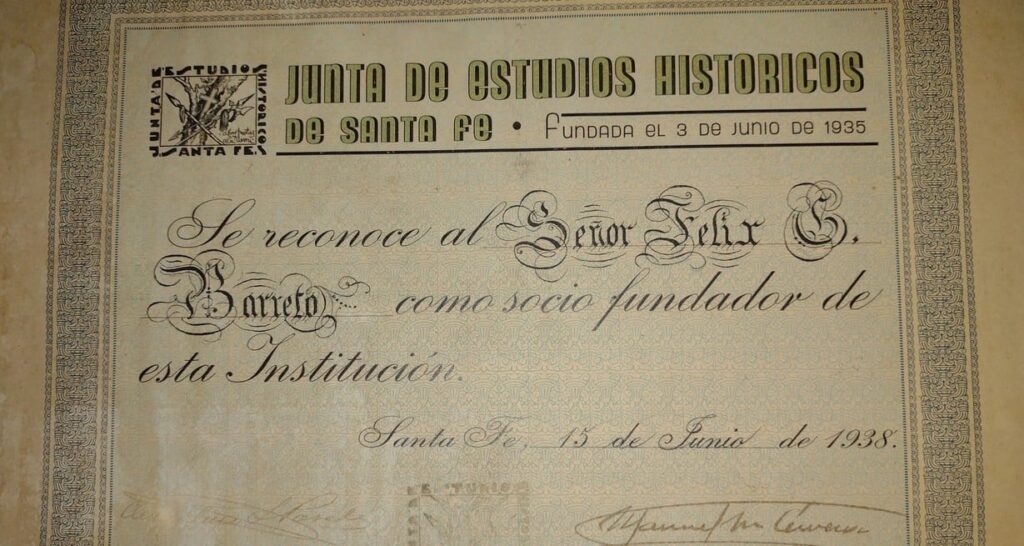 JUNTA DE ESTUDIOS HISTORICOS
DE SANTA FE • FUNDADA EL 3 DE JUNIO DE 1935
JUNTA DE ESTUDIOS HISTORICOS
SANTA FE.
Se reconoce al Señor Felix G.
Barreto como socio fundador de
esta Institución.
Santa Fe, 15 de Junio de 1938.
ESTUDIOS
Manuel M. Cervera